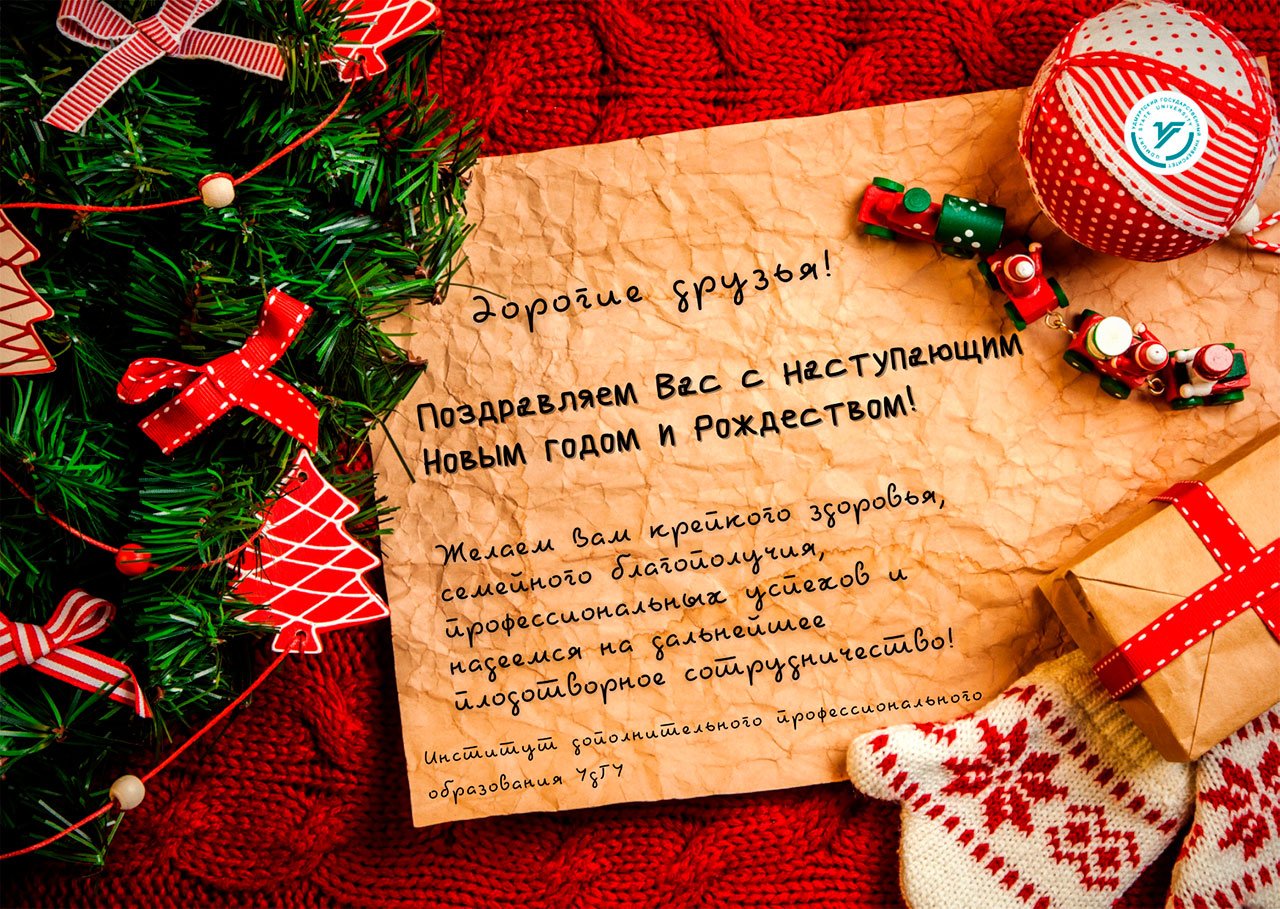 УДМУРТСКИЙ ГОСУДАРСТВЕННЫЙ УНИВЕРСИТЕТ
UDMURT STATE UNIVERSITY
Дорогие друзья!
Поздравляем Вас с наступающим
Новым годом и Рождеством!
Желаем Вам крепкого здоровья,
семейного благополучия,
профессиональных успехов и
надеемся на дальнейшее
плодотворное сотрудничество!
Институт дополнительного профессионального
образования УдГУ